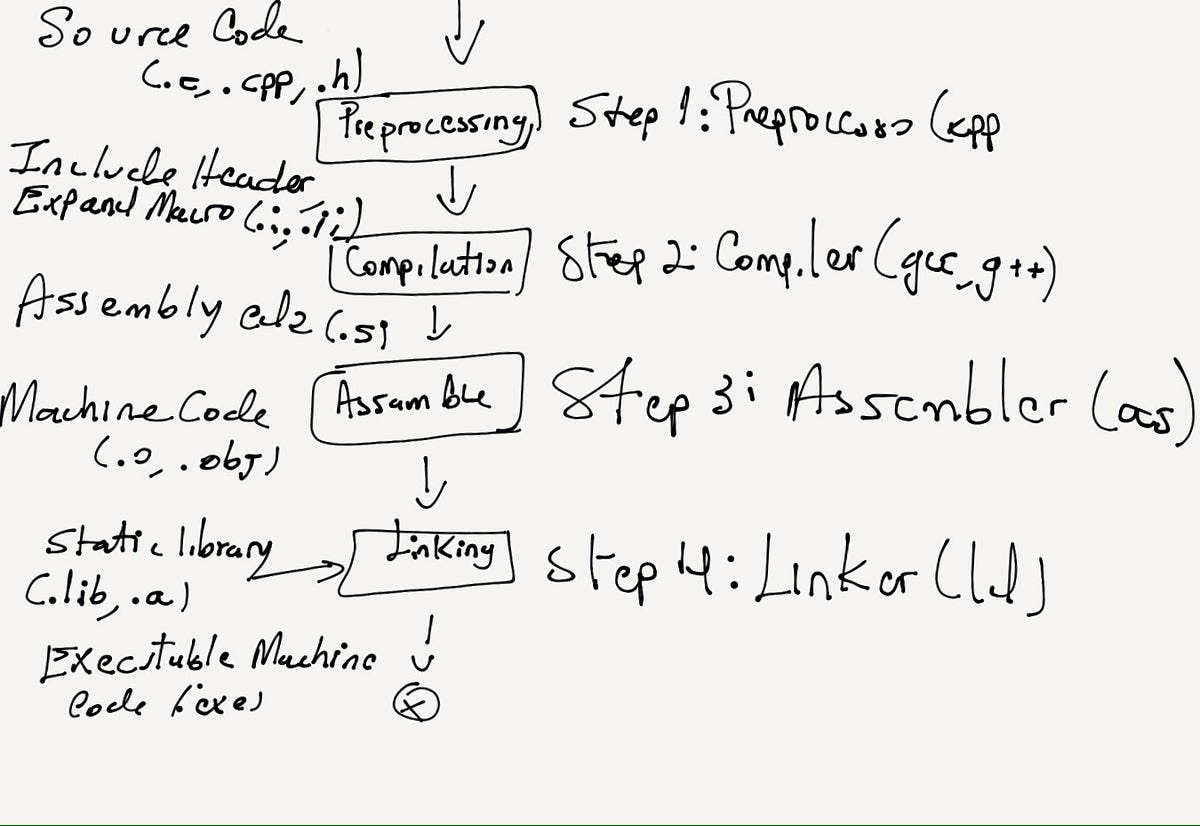 Source Code
(.c, .cpp, .h)
Preprocessing
Step 1: Preprocessor (cpp
Include Header
Expand Macro (.i, .ii)
Compilation
Step 2: Compiler (gcc, g++)
Assembly code (.s)
Assamble
Step 3: Assembler (as)
Machine Code
(.o, .obj)
Static library
(.lib, .a)
Linking
Step 4: Linker (ld)
Executable Machine
Code (.exe)